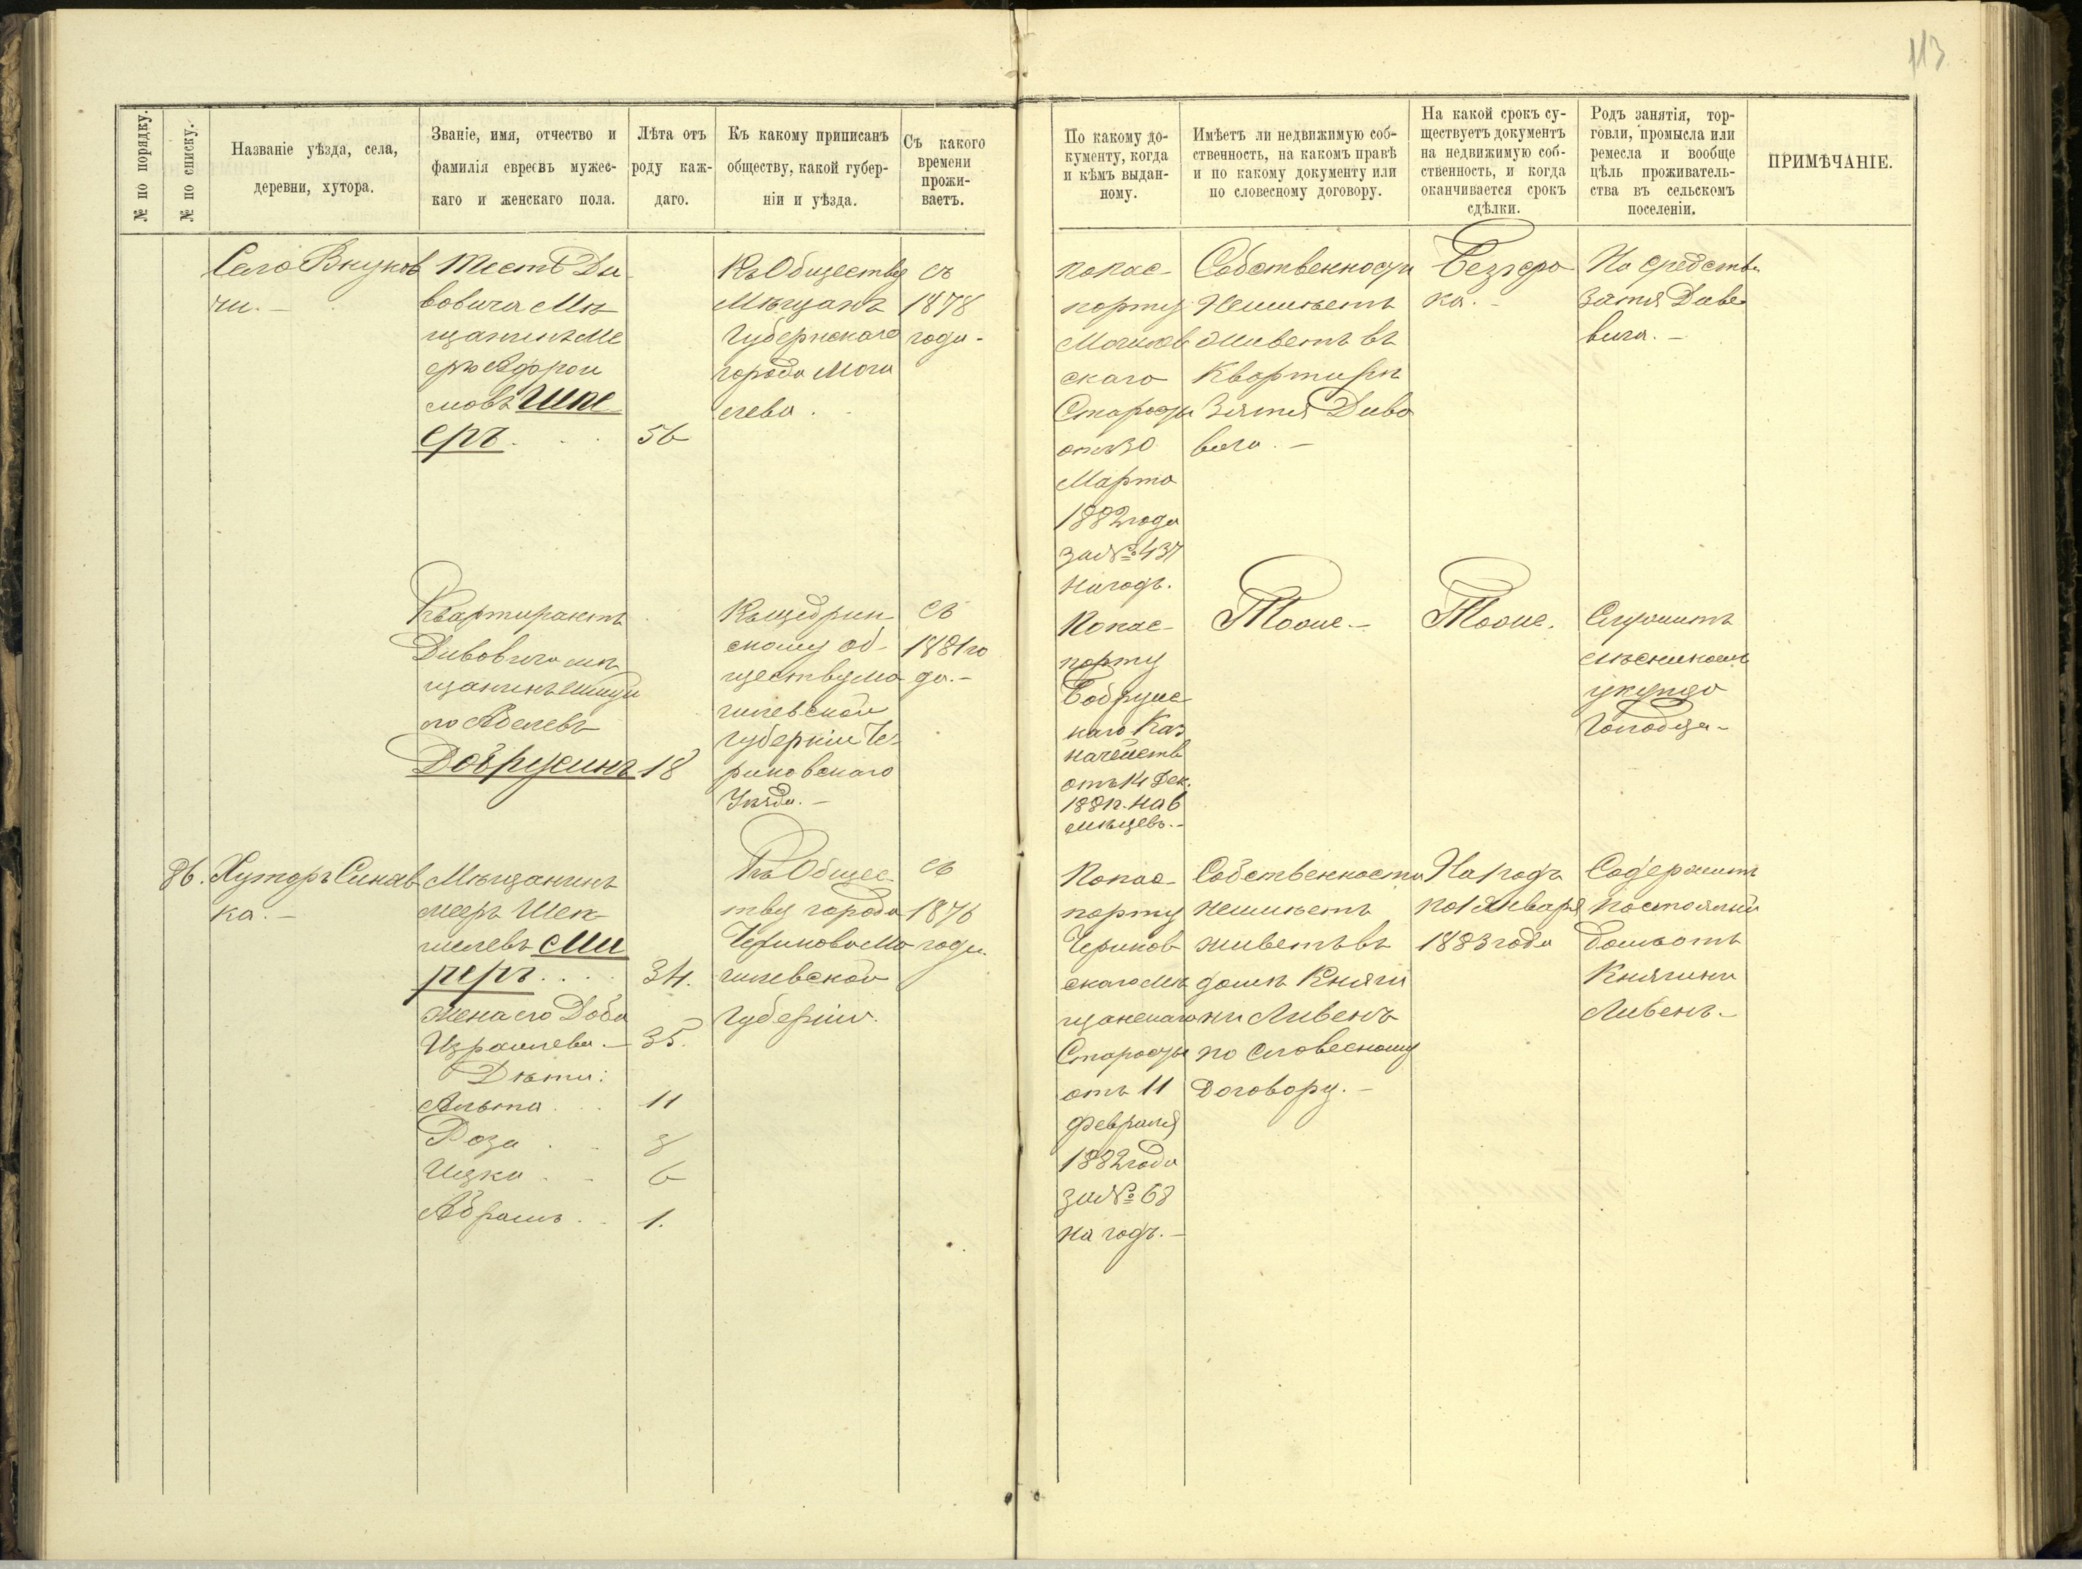 113
№ по порядку.
№ по списку.
Названіе уѣзда, села,
деревни, хутора.
Званіе, имя, отчество и
фамилія евреевъ мужес-
каго и женскаго пола.
Лѣта отъ
роду каж-
даго.
Къ какому приписанъ
обществу, какой губер-
ніи и уѣзда.
Съ какого
времени
прожи-
ваетъ.
По какому до-
кументу, когда
и кѣмъ выдан-
ному.
Имѣетъ ли недвижимую соб-
ственность, на какомъ правѣ
и по какому документу или
по словесному договору.
На какой срокъ су-
ществуетъ документъ
на недвижимую соб-
ственность, и когда
оканчивается срокъ
сдѣлки.
Родъ занятія, тор-
говли, промысла или
ремесла и вообще
цѣль проживатель-
ства въ сельскомъ
поселеніи.
ПРИМѢЧАНІЕ.
Село Внуков
чи. —
Тесть Ди
вовича Мѣ
щанинъ Ме
еръ
Шпе
еръ . . .
56
Къ Обществу
Мѣщанъ
Губернскаго
города Моги
лева .
съ
1878
года -
по пас-
порту
Могилев
скаго
Старосты
отъ 30
Марта
1882 года
за № 437
на годъ.
Собственности
Неимѣетъ
живетъ въ
Квартирѣ
Зятя Диво
вича . —
Безсро
ка. -
На средства
зятя Диво
вича. —
Квартирантъ
Дивовича мѣ
щанинъ
Абелевъ
Добрускинъ
18
Къ Щедрин
скому об-
ществу мо
гилевской
губерніи Че-
риковскаго
Уѣзда. —
съ
1881 го
да. —
По пас-
порту
Бобруйс
каго Каз
начейств
отъ 14 Дек.
1881 г. на 6
мѣсяцевъ. -
Тоже. —
Тоже.
Служитъ
у купца
Голодца -
86.
Хуторъ Синяв
ка. —
Мѣщанинъ
мееръ Шен
шелевъ Ми
реръ . . . .
34.
Жена его Доба
Израилева. —
35.
Дѣти:
Альта . . .
11
Роза . . .
8
Ицка . . -
6
Абрамъ . .
1.
Къ Общес
тву города
Черикова Мо
гилевской
Губерніи.
съ
1876
года.
По пас-
порту
Чериков
скаго мѣ
щанскаго
Старосты
отъ 11
Февраля
1882 года
за № 68
на годъ. —
Собственности
неимѣетъ
живетъ въ
домѣ Княги
ни Ливенъ
по словесному
Договору. —
На годъ
по 1 Января
1883 года
Содержитъ
постоялый
домъ отъ
Княгини
Ливенъ. —